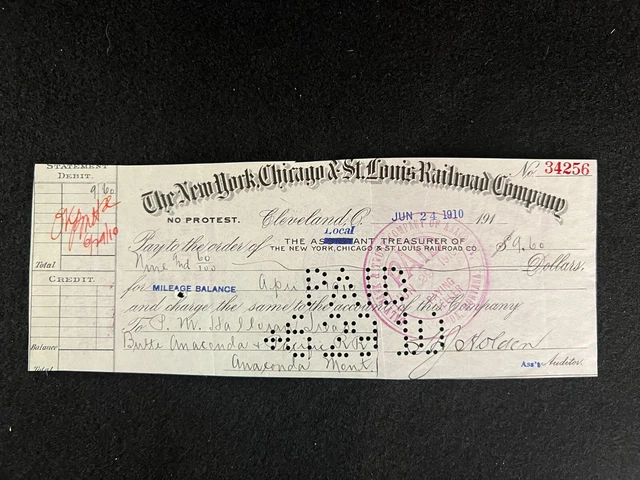 STATEMENT
DEBIT.
9 60
Total
CREDIT.
Balance
Total
The New York, Chicago & St. Louis Railroad Company
No. 34256
NO PROTEST. Cleveland, O. JUN 24 1910 191
Local
Pay to the order of THE ASSISTANT TREASURER OF
THE NEW YORK, CHICAGO & ST. LOUIS RAILROAD CO. $9.60
Nine and 60/100 Dollars.
for MILEAGE BALANCE
and charge the same to the account of this Company
To P. M. Halloran
Butte Anaconda & Pacific RR
Anaconda Mont.
Holden
Ass't Auditor.
PAID